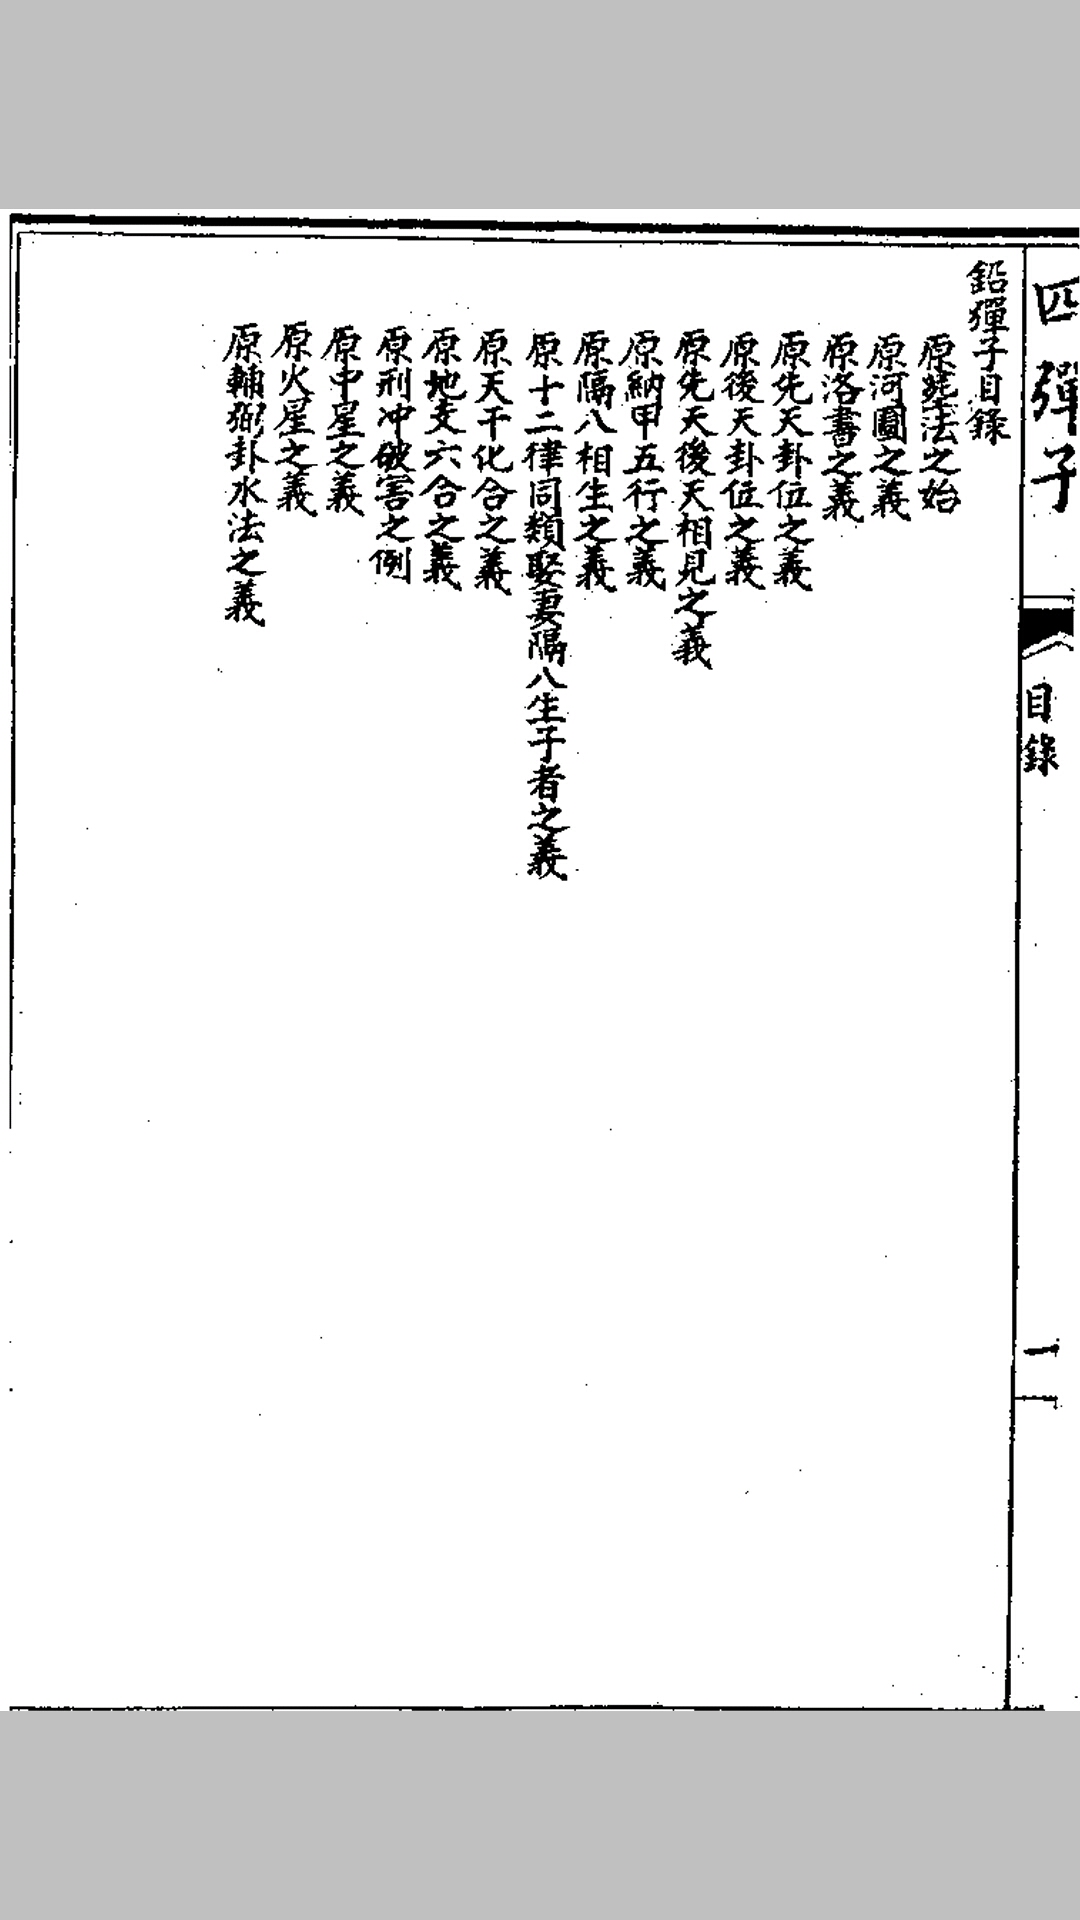 四彈子
目錄
一
鉛彈子目錄
原塋法之始
原河圖之義
原洛書之義
原先天卦位之義
原後天卦位之義
原先天後天相見之義
原納甲五行之義
原隔八相生之義
原十二律同類娶妻隔八生子者之義
原天干化合之義
原地支六合之義
原刑冲破害之例
原中星之義
原火星之義
原輔弼卦水法之義